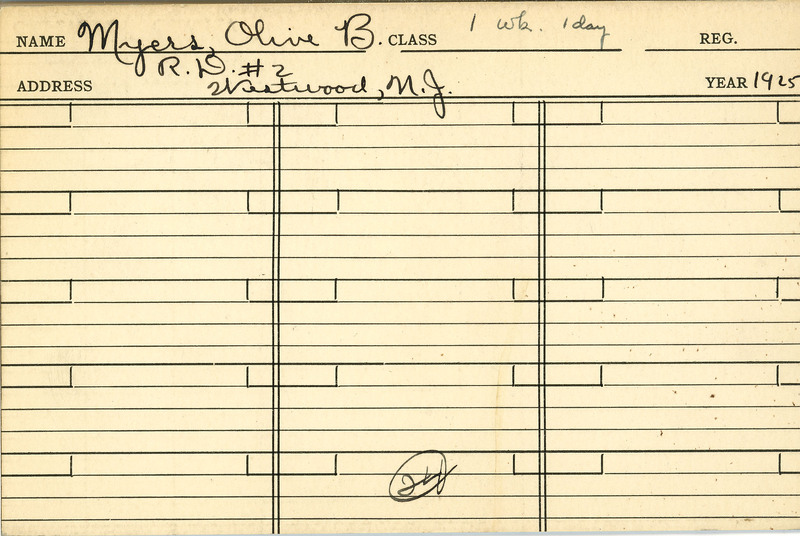 NAME Myers, Olive B. CLASS 1 wk. 1 day REG.
R.D. #2
ADDRESS Westwood, N.J. YEAR 1925